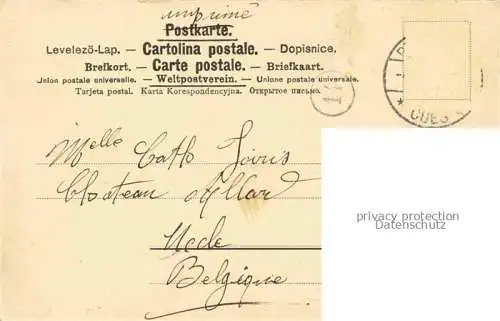 imprimé
Postkarte.
Levelező-Lap. — Cartolina postale. — Dopisnice.
Brefkort. — Carte postale. — Briefkaart.
Union postale universelle. — Weltpostverein. — Unione postale universale.
Tarjeta postal. Karta Korespondencyjna. Открытое письмо.
Melle
Uccle
Belgique
privacy protection
Datenschutz